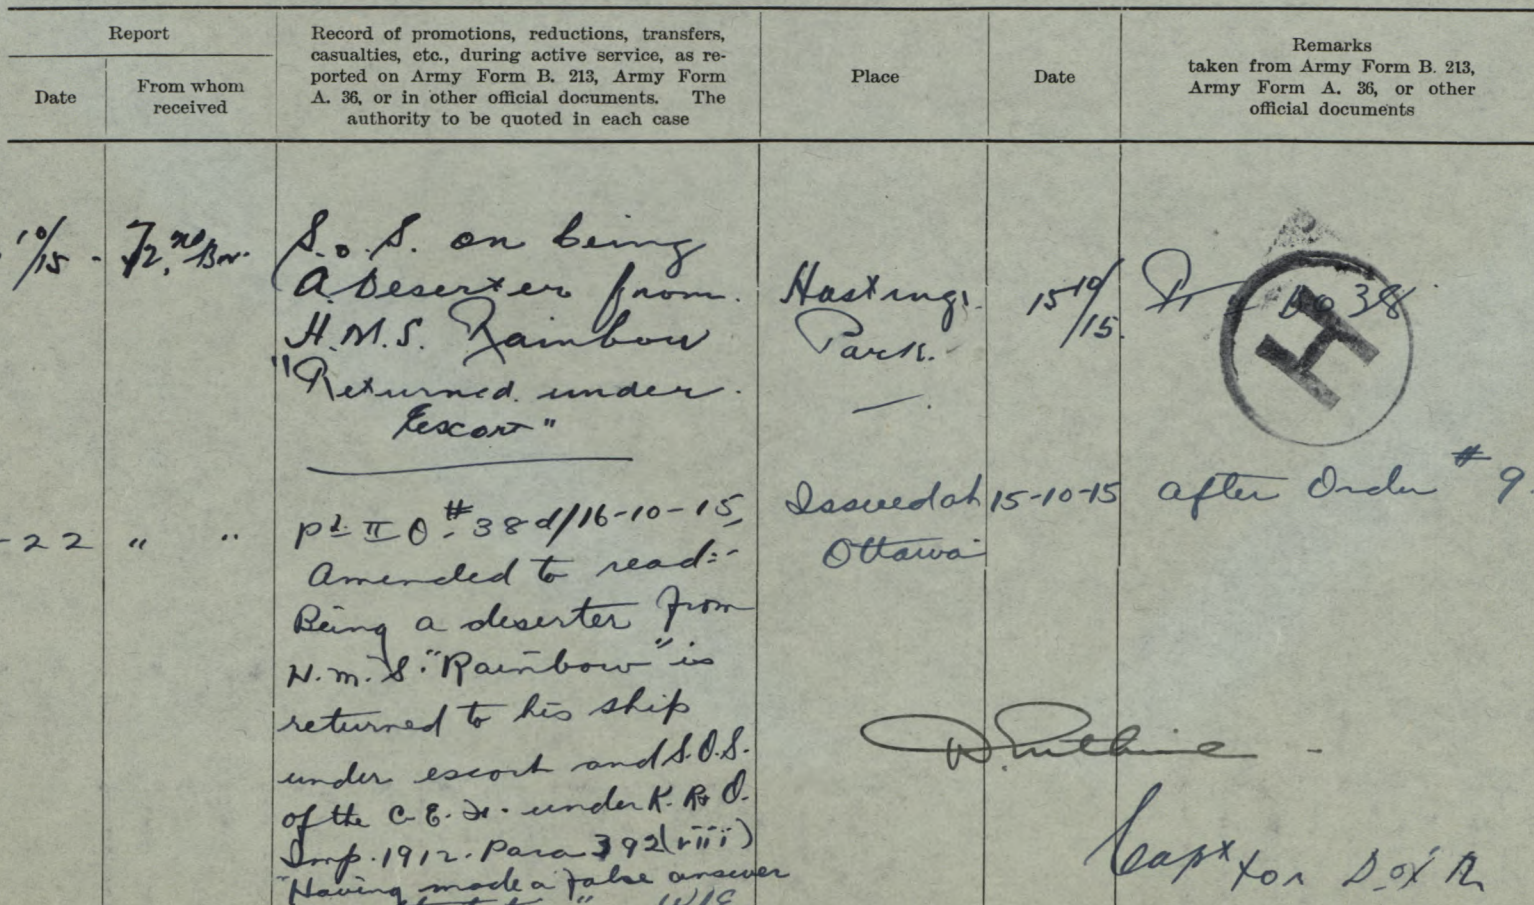 Report
Date
From whom
received
Record of promotions, reductions, transfers,
casualties, etc., during active service, as re-
ported on Army Form B. 213, Army Form
A. 36, or in other official documents. The
authority to be quoted in each case
Place
Date
Remarks
taken from Army Form B. 213,
Army Form A. 36, or other
official documents
10/15 - 72nd Bn.
S.o.S. on being
A Deserter from
H.M.S. Rainbow
"Returned under
Escort"
Hastings
Park.
15 10/15.
38
H
-22 " "
pt. II O. #38 d/16-10-15,
Amended to read:-
Being a deserter from
H.M.S. "Rainbow" is
returned to his ship
under escort and S.O.S.
of the C.E.F. under K.R.&O.
Imp. 1912. Para 392(viii)
"Having made a false answer
Issued at
Ottawa
15-10-15
after Order #9.
Capt for D of R